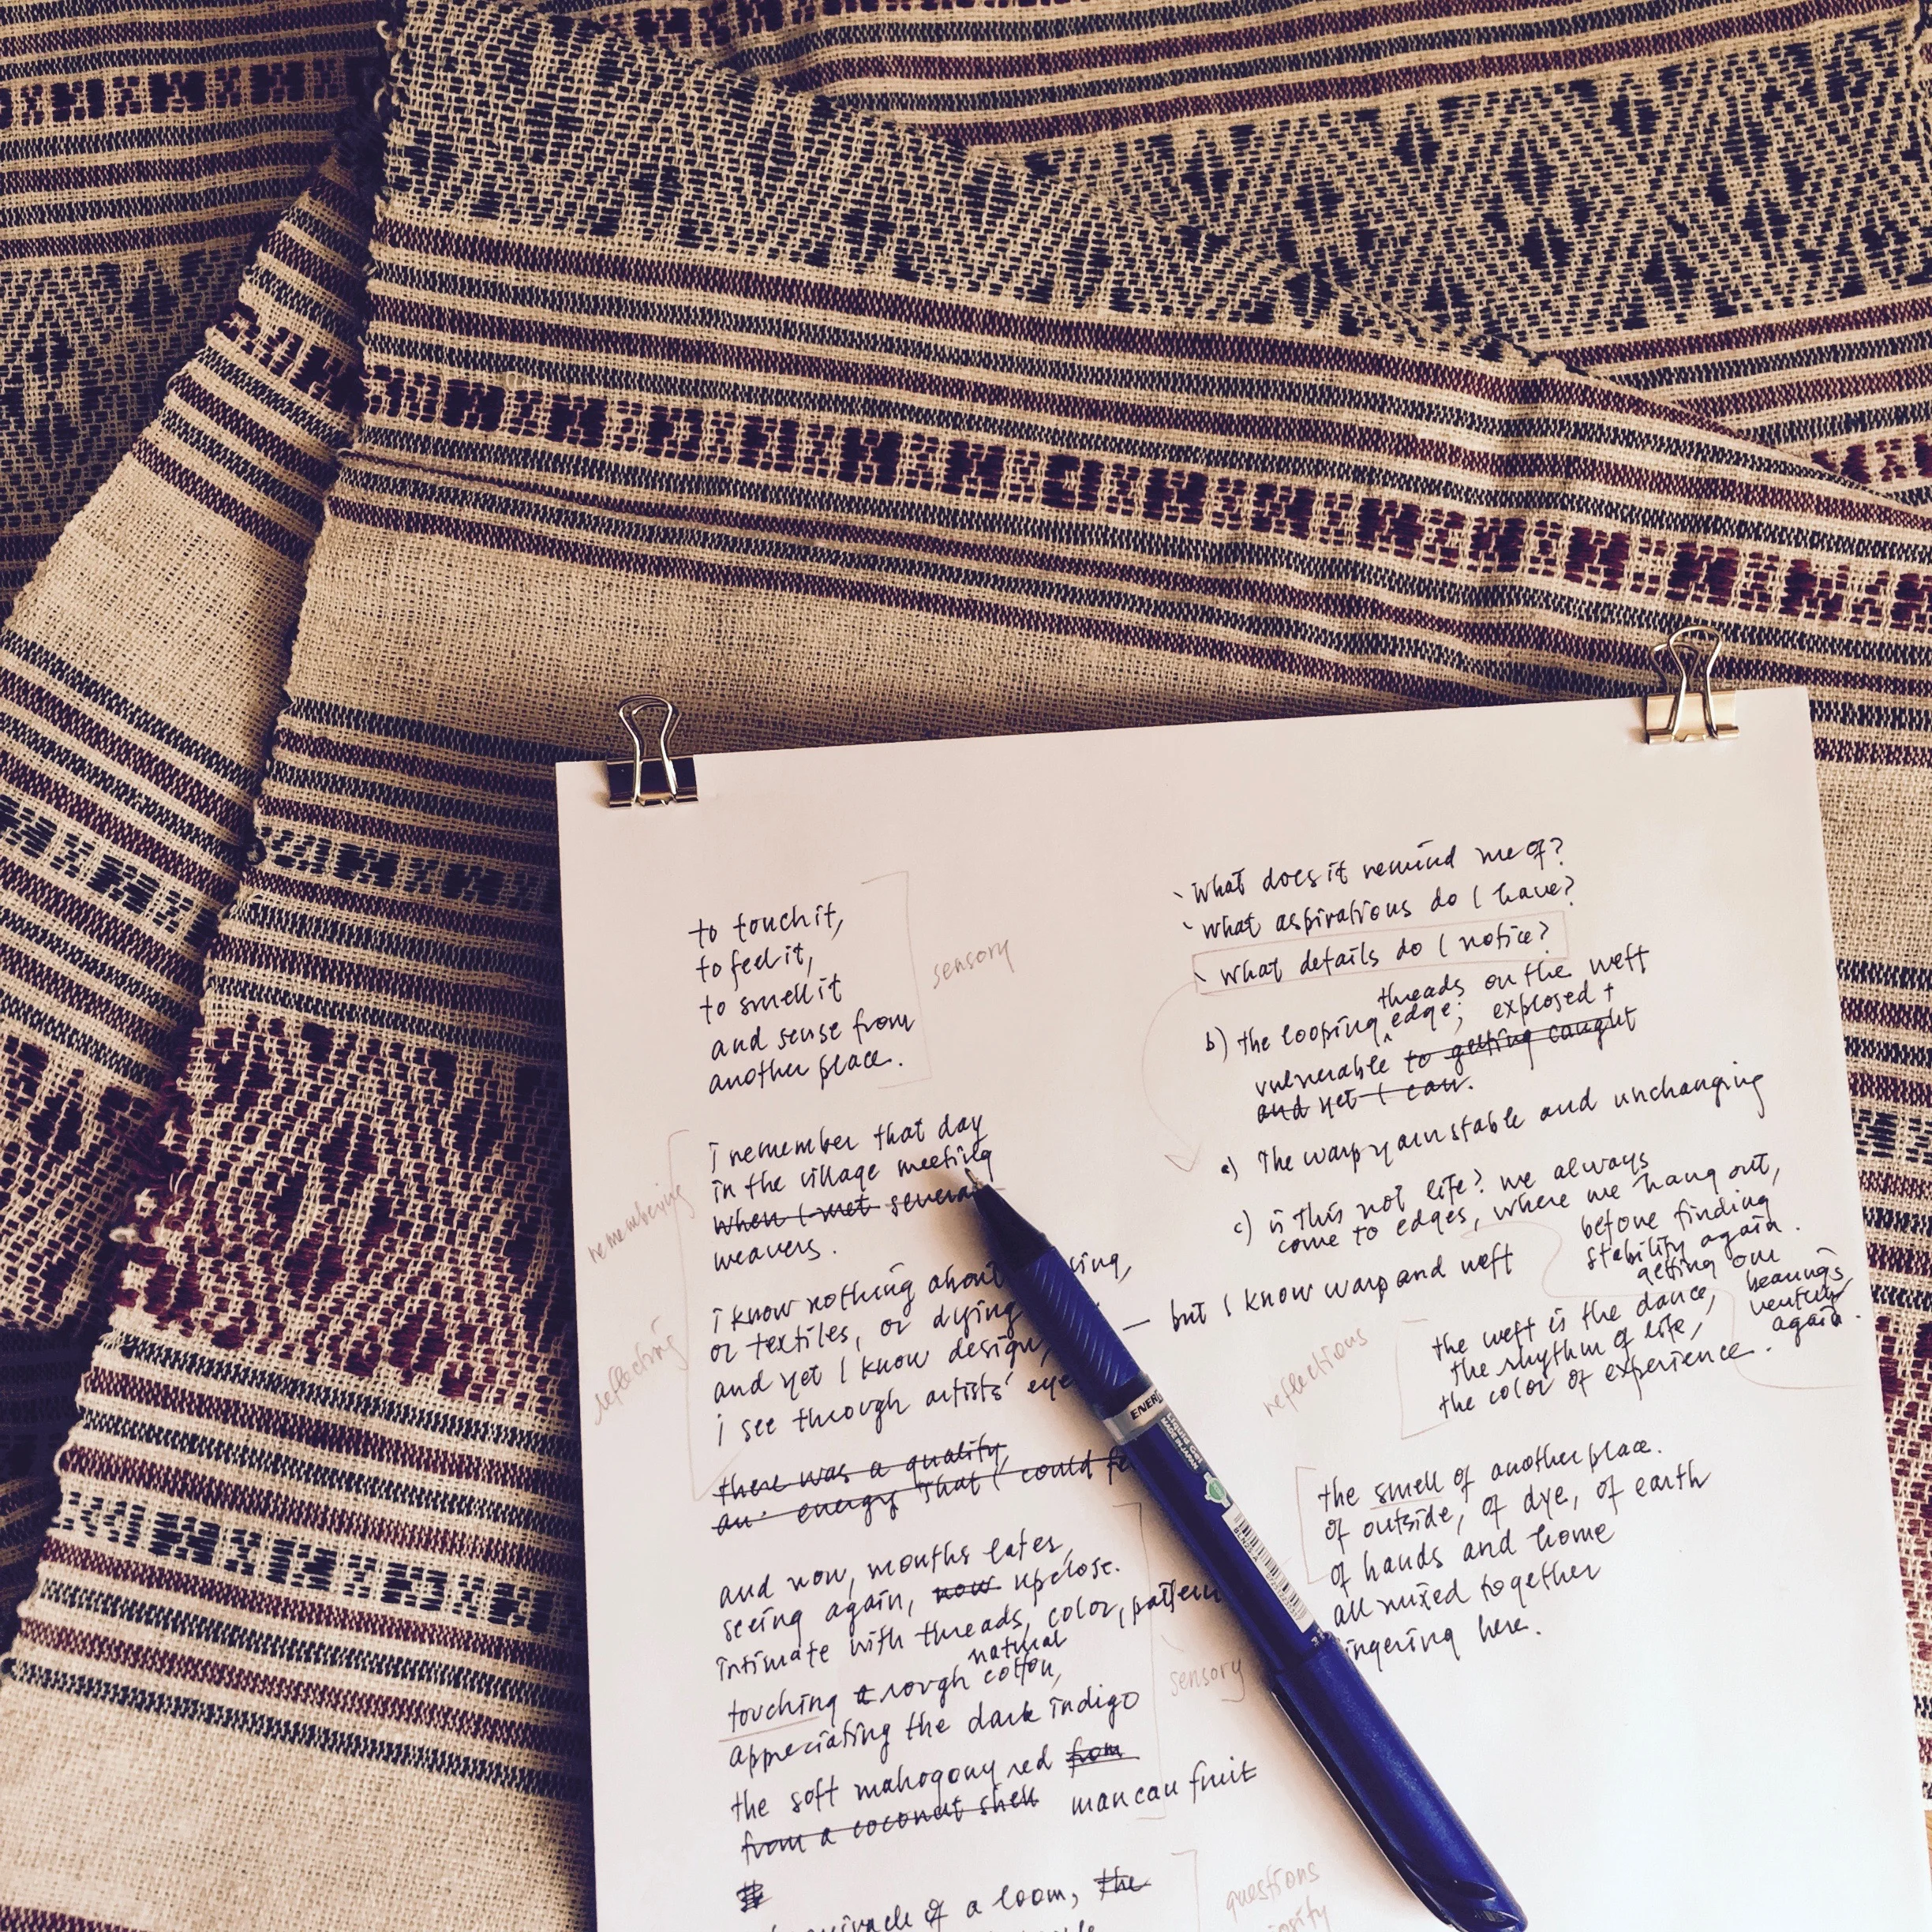 to touch it,
to feel it,
to smell it
and sense from
another place.
sensory
i remember that day
in the village meeting
when I met several
weavers.
remembering
i know nothing about
or textiles, or dying
and yet I know design,
i see through artists' eye
— but I know warp and weft
reflecting
there was a quality,
an energy that I could
and now, months later,
seeing again, now up close.
intimate with threads, color, pattern
natural
touching a rough cotton,
appreciating the dark indigo
the soft mahogony red from
from a coconut shell mancau fruit
sensory
of a loom, the
questions
What does it remind me of?
What aspirations do I have?
What details do I notice?
threads on the weft
b) the looping edge; exposed +
vulnerable to getting caught
and yet I can.
a) The warp yarn stable and unchanging
c) is this not life? we always
come to edges, where we hang out,
before finding
stability again.
getting our
bearings,
venture
again.
reflections
the weft is the dance,
the rhythm of life,
the color of experience.
the smell of another place.
of outside, of dye, of earth
of hands and home
all mixed together
lingering here.
ENERG